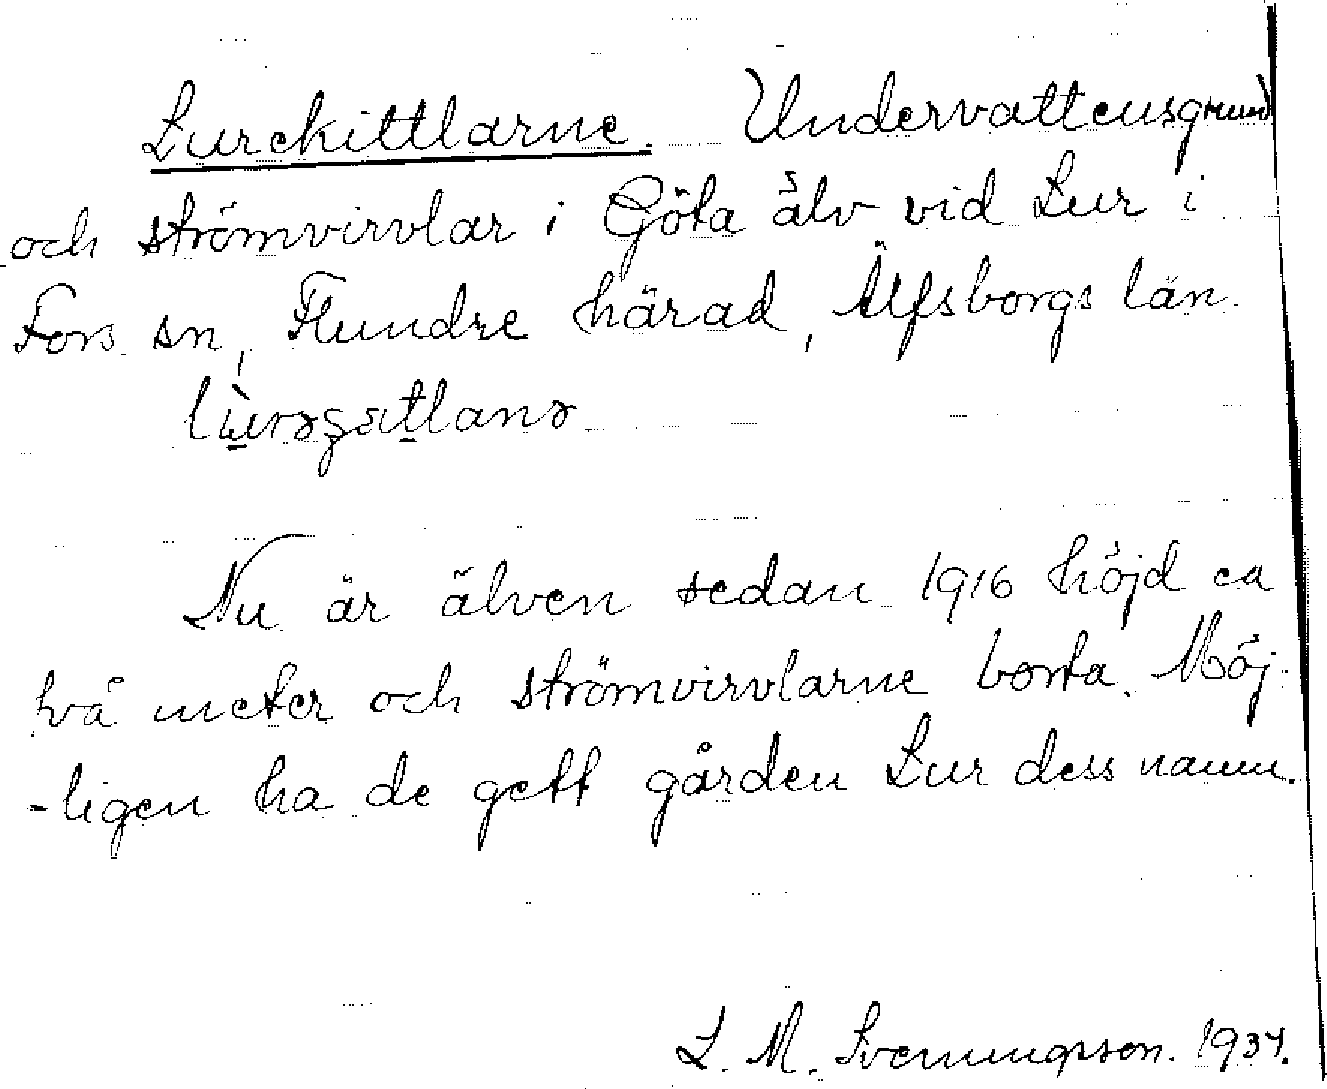 Lurekittlarne. Undervattensgrund
och strömvirvlar i Göta älv vid Lur i
Fors sn, Flundre härad, Älfsborgs län.
Nu är älven sedan 1916 höjd ca
två meter och strömvirvlarne borta. Möj-
-ligen ha de gett gården Lur dess namn.
L. M. Svenungsson. 1937.